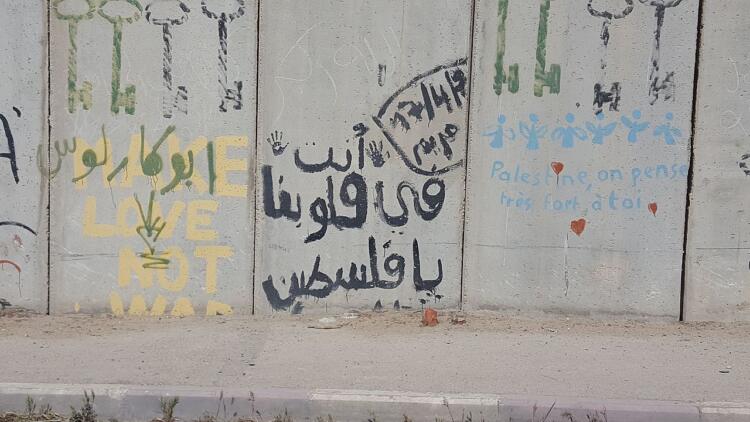 ابو كارلوس
MAKE
LOVE
NOT
WAR
17/4/
أنت
في قلوبنا
يا فلسطين
Palestine, on pense
très fort, à toi